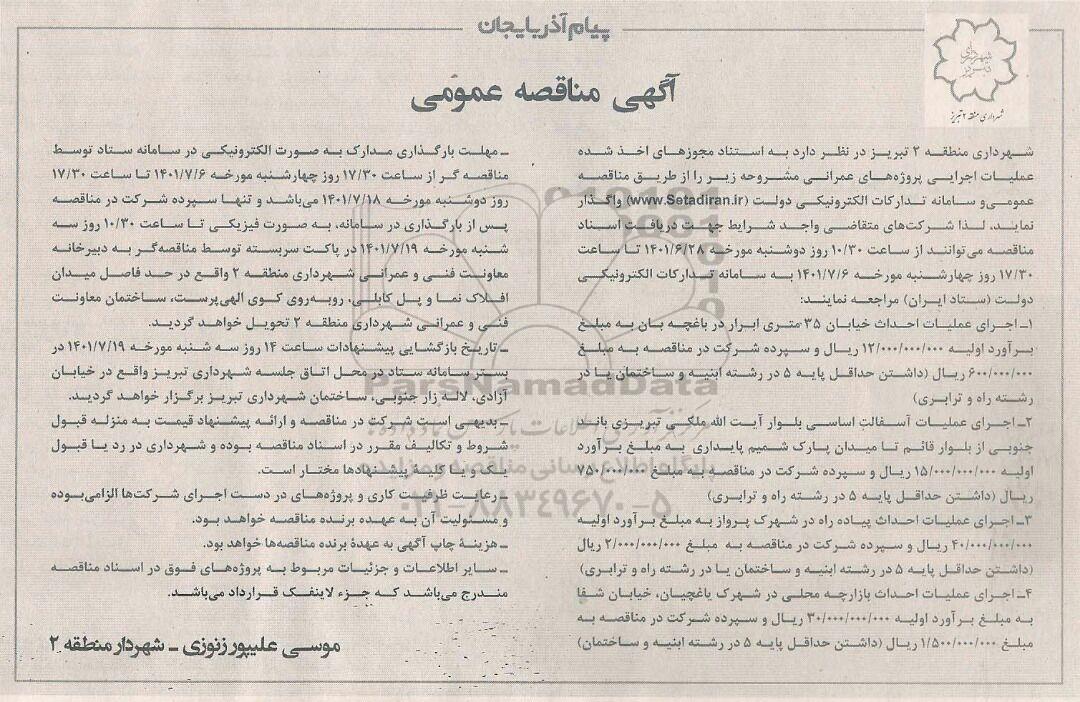 پیام آذربایجان
شهرداری تبریز
شهرداری منطقه ۲ تبریز
آگهی مناقصه عمومی
شهرداری منطقه ۲ تبریز در نظر دارد به استناد مجوزهای اخذ شده
عملیات اجرایی پروژه‌های عمرانی مشروحه زیر را از طریق مناقصه
عمومی‌و سامانه تدارکات الکترونیکی دولت (www.Setadiran.ir) واگذار
نماید، لذا شرکت‌های متقاضی واجد شرایط جهت دریافت اسناد
مناقصه می‌توانند از ساعت ۱۰/۳۰ روز دوشنبه مورخه ۱۴۰۱/۶/۲۸ تا ساعت
۱۷/۳۰ روز چهارشنبه مورخه ۱۴۰۱/۷/۶ به سامانه تدارکات الکترونیکی
دولت (ستاد ایران) مراجعه نمایند:
۱ـ اجرای عملیات احداث خیابان ۳۵ متری ابرار در باغچه بان به مبلغ
برآورد اولیه ۱۲/۰۰۰/۰۰۰/۰۰۰ ریال و سپرده شرکت در مناقصه به مبلغ
۶۰۰/۰۰۰/۰۰۰ ریال (داشتن حداقل پایه ۵ در رشته ابنیه و ساختمان یا در
رشته راه و ترابری)
۲ـ اجرای عملیات آسفالت اساسی بلوار آیت الله ملکی تبریزی باند
جنوبی از بلوار قائم تا میدان پارک شمیم پایداری به مبلغ برآورد
اولیه ۱۵/۰۰۰/۰۰۰/۰۰۰ ریال و سپرده شرکت در مناقصه به مبلغ ۷۵۰/۰۰۰/۰۰۰
ریال (داشتن حداقل پایه ۵ در رشته راه و ترابری)
۳ـ اجرای عملیات احداث پیاده راه در شهرک پرواز به مبلغ برآورد اولیه
۴۰/۰۰۰/۰۰۰/۰۰۰ ریال و سپرده شرکت در مناقصه به مبلغ ۲/۰۰۰/۰۰۰/۰۰۰ ریال
(داشتن حداقل پایه ۵ در رشته ابنیه و ساختمان یا در رشته راه و ترابری)
۴ـ اجرای عملیات احداث بازارچه محلی در شهرک یاغچیان، خیابان شفا
به مبلغ برآورد اولیه ۳۰/۰۰۰/۰۰۰/۰۰۰ ریال و سپرده شرکت در مناقصه به
مبلغ ۱/۵۰۰/۰۰۰/۰۰۰ ریال (داشتن حداقل پایه ۵ در رشته ابنیه و ساختمان)
ـ مهلت بارگذاری مدارک به صورت الکترونیکی در سامانه ستاد توسط
مناقصه گر از ساعت ۱۷/۳۰ روز چهارشنبه مورخه ۱۴۰۱/۷/۶ تا ساعت ۱۷/۳۰
روز دوشنبه مورخه ۱۴۰۱/۷/۱۸ می‌باشد و تنها سپرده شرکت در مناقصه
پس از بارگذاری در سامانه، به صورت فیزیکی تا ساعت ۱۰/۳۰ روز سه
شنبه مورخه ۱۴۰۱/۷/۱۹ در پاکت سربسته توسط مناقصه‌گر به دبیرخانه
معاونت فنی و عمرانی شهرداری منطقه ۲ واقع در حد فاصل میدان
افلاک نما و پل کابلی، روبه‌روی کوی الهی‌پرست، ساختمان معاونت
فنی و عمرانی شهرداری منطقه ۲ تحویل خواهد گردید.
ـ تاریخ بازگشایی پیشنهادات ساعت ۱۴ روز سه شنبه مورخه ۱۴۰۱/۷/۱۹ در
بستر سامانه ستاد در محل اتاق جلسه شهرداری تبریز واقع در خیابان
آزادی، لاله زار جنوبی، ساختمان شهرداری تبریز برگزار خواهد گردید.
ـ بدیهی است شرکت در مناقصه و ارائه پیشنهاد قیمت به منزله قبول
شروط و تکالیف مقرر در اسناد مناقصه بوده و شهرداری در رد یا قبول
یک و یا کلیهٔ پیشنهادها مختار است.
ـ رعایت ظرفیت کاری و پروژه‌های در دست اجرای شرکت‌ها الزامی‌بوده
و مسئولیت آن به عهده برنده مناقصه خواهد بود.
ـ هزینهٔ چاپ آگهی به عهدهٔ برنده مناقصه‌ها خواهد بود.
ـ سایر اطلاعات و جزئیات مربوط به پروژه‌های فوق در اسناد مناقصه
مندرج می‌باشد که جزء لاینفک قرارداد می‌باشد.
موسی علیپور زنوزی ـ شهردار منطقه ۲
ParsNamadData
۰۲۱-۸۸۳۴۹۶۷۰-۵